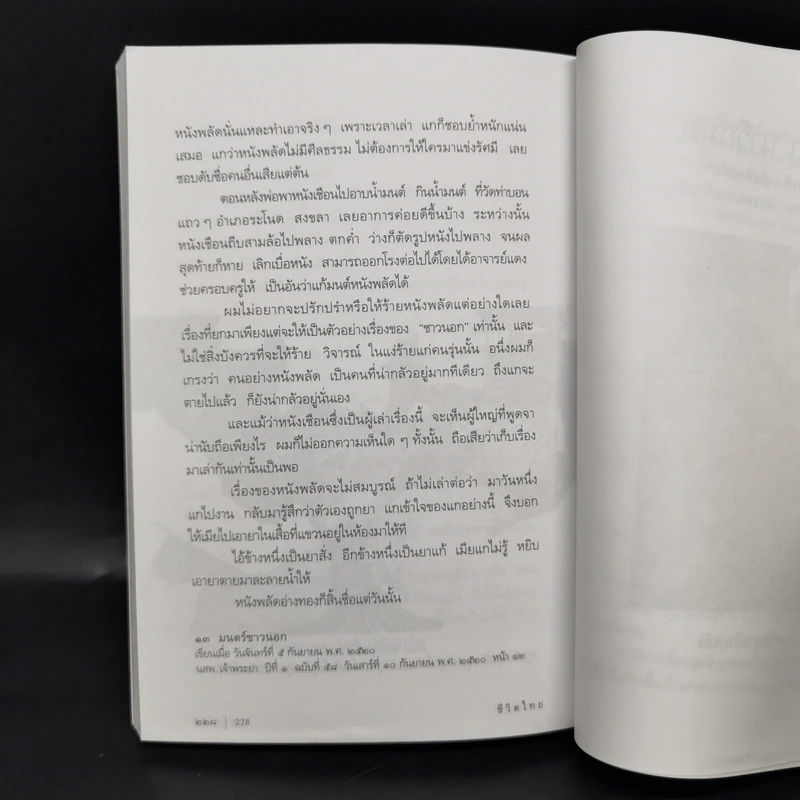 หนังพลัดนั่นแหละทำเอาจริง ๆ เพราะเวลาเล่า แกก็ชอบย้ำหนักแน่น
เสมอ แกว่าหนังพลัดไม่มีศีลธรรม ไม่ต้องการให้ใครมาแข่งรัศมี เลย
ชอบดับชื่อคนอื่นเสียแต่ต้น
ตอนหลังพ่อพาหนังเชือนไปอาบน้ำมนต์ กินน้ำมนต์ ที่วัดท่าบอน
แถว ๆ อำเภอระโนด สงขลา เลยอาการค่อยดีขึ้นบ้าง ระหว่างนั้น
หนังเชือนถีบสามล้อไปพลาง ตกค่ำ ว่างก็ตัดรูปหนังไปพลาง จนผล
สุดท้ายก็หาย เลิกเบื่อหนัง สามารถออกโรงต่อไปได้โดยได้อาจารย์แดง
ช่วยครอบครูให้ เป็นอันว่าแก้มนต์หนังพลัดได้
ผมไม่อยากจะปรักปรำหรือให้ร้ายหนังพลัดแต่อย่างใดเลย
เรื่องที่ยกมาเพียงแต่จะให้เป็นตัวอย่างเรื่องของ “ชาวนอก” เท่านั้น และ
ไม่ใช่สิ่งบังควรที่จะให้ร้าย วิจารณ์ ในแง่ร้ายแก่คนรุ่นนั้น อนึ่งผมก็
เกรงว่า คนอย่างหนังพลัด เป็นคนที่น่ากลัวอยู่มากทีเดียว ถึงแกจะ
ตายไปแล้ว ก็ยังน่ากลัวอยู่นั่นเอง
และแม้ว่าหนังเชือนซึ่งเป็นผู้เล่าเรื่องนี้ จะเห็นผู้ใหญ่ที่พูดจา
น่านับถือเพียงไร ผมก็ไม่ออกความเห็นใด ๆ ทั้งนั้น ถือเสียว่าเก็บเรื่อง
มาเล่ากันเท่านั้นเป็นพอ
เรื่องของหนังพลัดจะไม่สมบูรณ์ ถ้าไม่เล่าต่อว่า มาวันหนึ่ง
แกไปงาน กลับมารู้สึกว่าตัวเองถูกยา แกเข้าใจของแกอย่างนี้ จึงบอก
ให้เมียไปเอายาในเสื้อที่แขวนอยู่ในห้องมาให้ที
ไอ้ข้างหนึ่งเป็นยาสั่ง อีกข้างหนึ่งเป็นยาแก้ เมียแกไม่รู้ หยิบ
เอายาตายมาละลายน้ำให้
หนังพลัดอ่างทองก็สิ้นชื่อแต่วันนั้น
๑๓ มนตร์ชาวนอก
เขียนเมื่อ วันจันทร์ที่ ๕ กันยายน พ.ศ. ๒๕๒๐
นสพ. เจ้าพระยา ปีที่ ๑ ฉบับที่ ๕๘ วันเสาร์ที่ ๑๐ กันยายน พ.ศ. ๒๕๒๐ หน้า ๑๒
๒๒๘ | 228
ชีวิตไทย